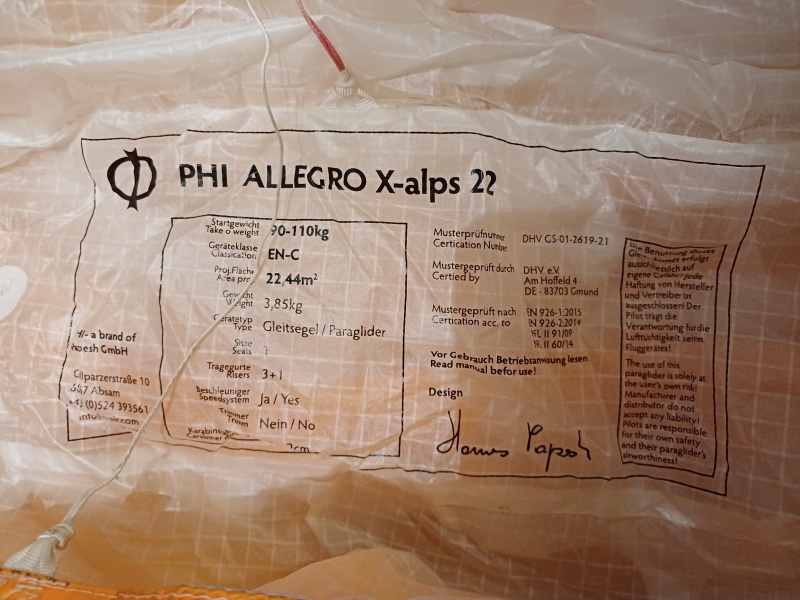 PHI ALLEGRO X-alps 22
Startgewicht
Take o weight
90-110kg
Geräteklasse
Classication
EN-C
Proj.Fläche
Area proj
22,44m²
Gewicht
Weight
3,85kg
Gerätetyp
Type
Gleitsegel / Paraglider
Sitze
Seats
1
Tragegurte
Risers
3+1
Beschleuniger
Speedsystem
Ja / Yes
Trimmer
Trimm
Nein / No
Karabiner
2cm
a brand of
Papesh GmbH
Gilparzerstraße 10
Absam
(0)524 393561
Musterprüfnummer
Certication Number
DHV GS-01-2619-21
Mustergeprüft durch
Certied by
DHV e.V.
Am Hoffeld 4
DE - 83703 Gmund
Mustergeprüft nach
Certication acc. to
EN 926-1:2015
EN 926-2:2014
NFL II 91/09
NfL II 60/14
Vor Gebrauch Betriebsanwisung lesen
Read manual befor use!
Design
Hannes Papesh
Die Benutzung dieses
Gleitschirmes erfolgt
ausschliesslich auf
eigene Gefahr! Jede
Haftung von Hersteller
und Vertreiber ist
ausgeschlossen! Der
Pilot trägt die
Verantwortung für die
Lufttüchtigkeit seines
Fluggerätes!
The use of this
paraglider is solely at
the user's own risk!
Manufacturer and
distributor do not
accept any liability!
Pilots are responsible
for their own safety
and their paraglider's
airworthiness!